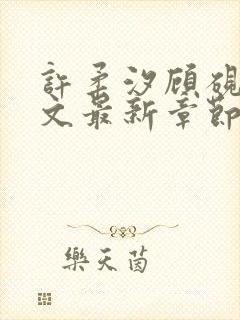 許柔汐顧硯
文最新章節
樂天茵